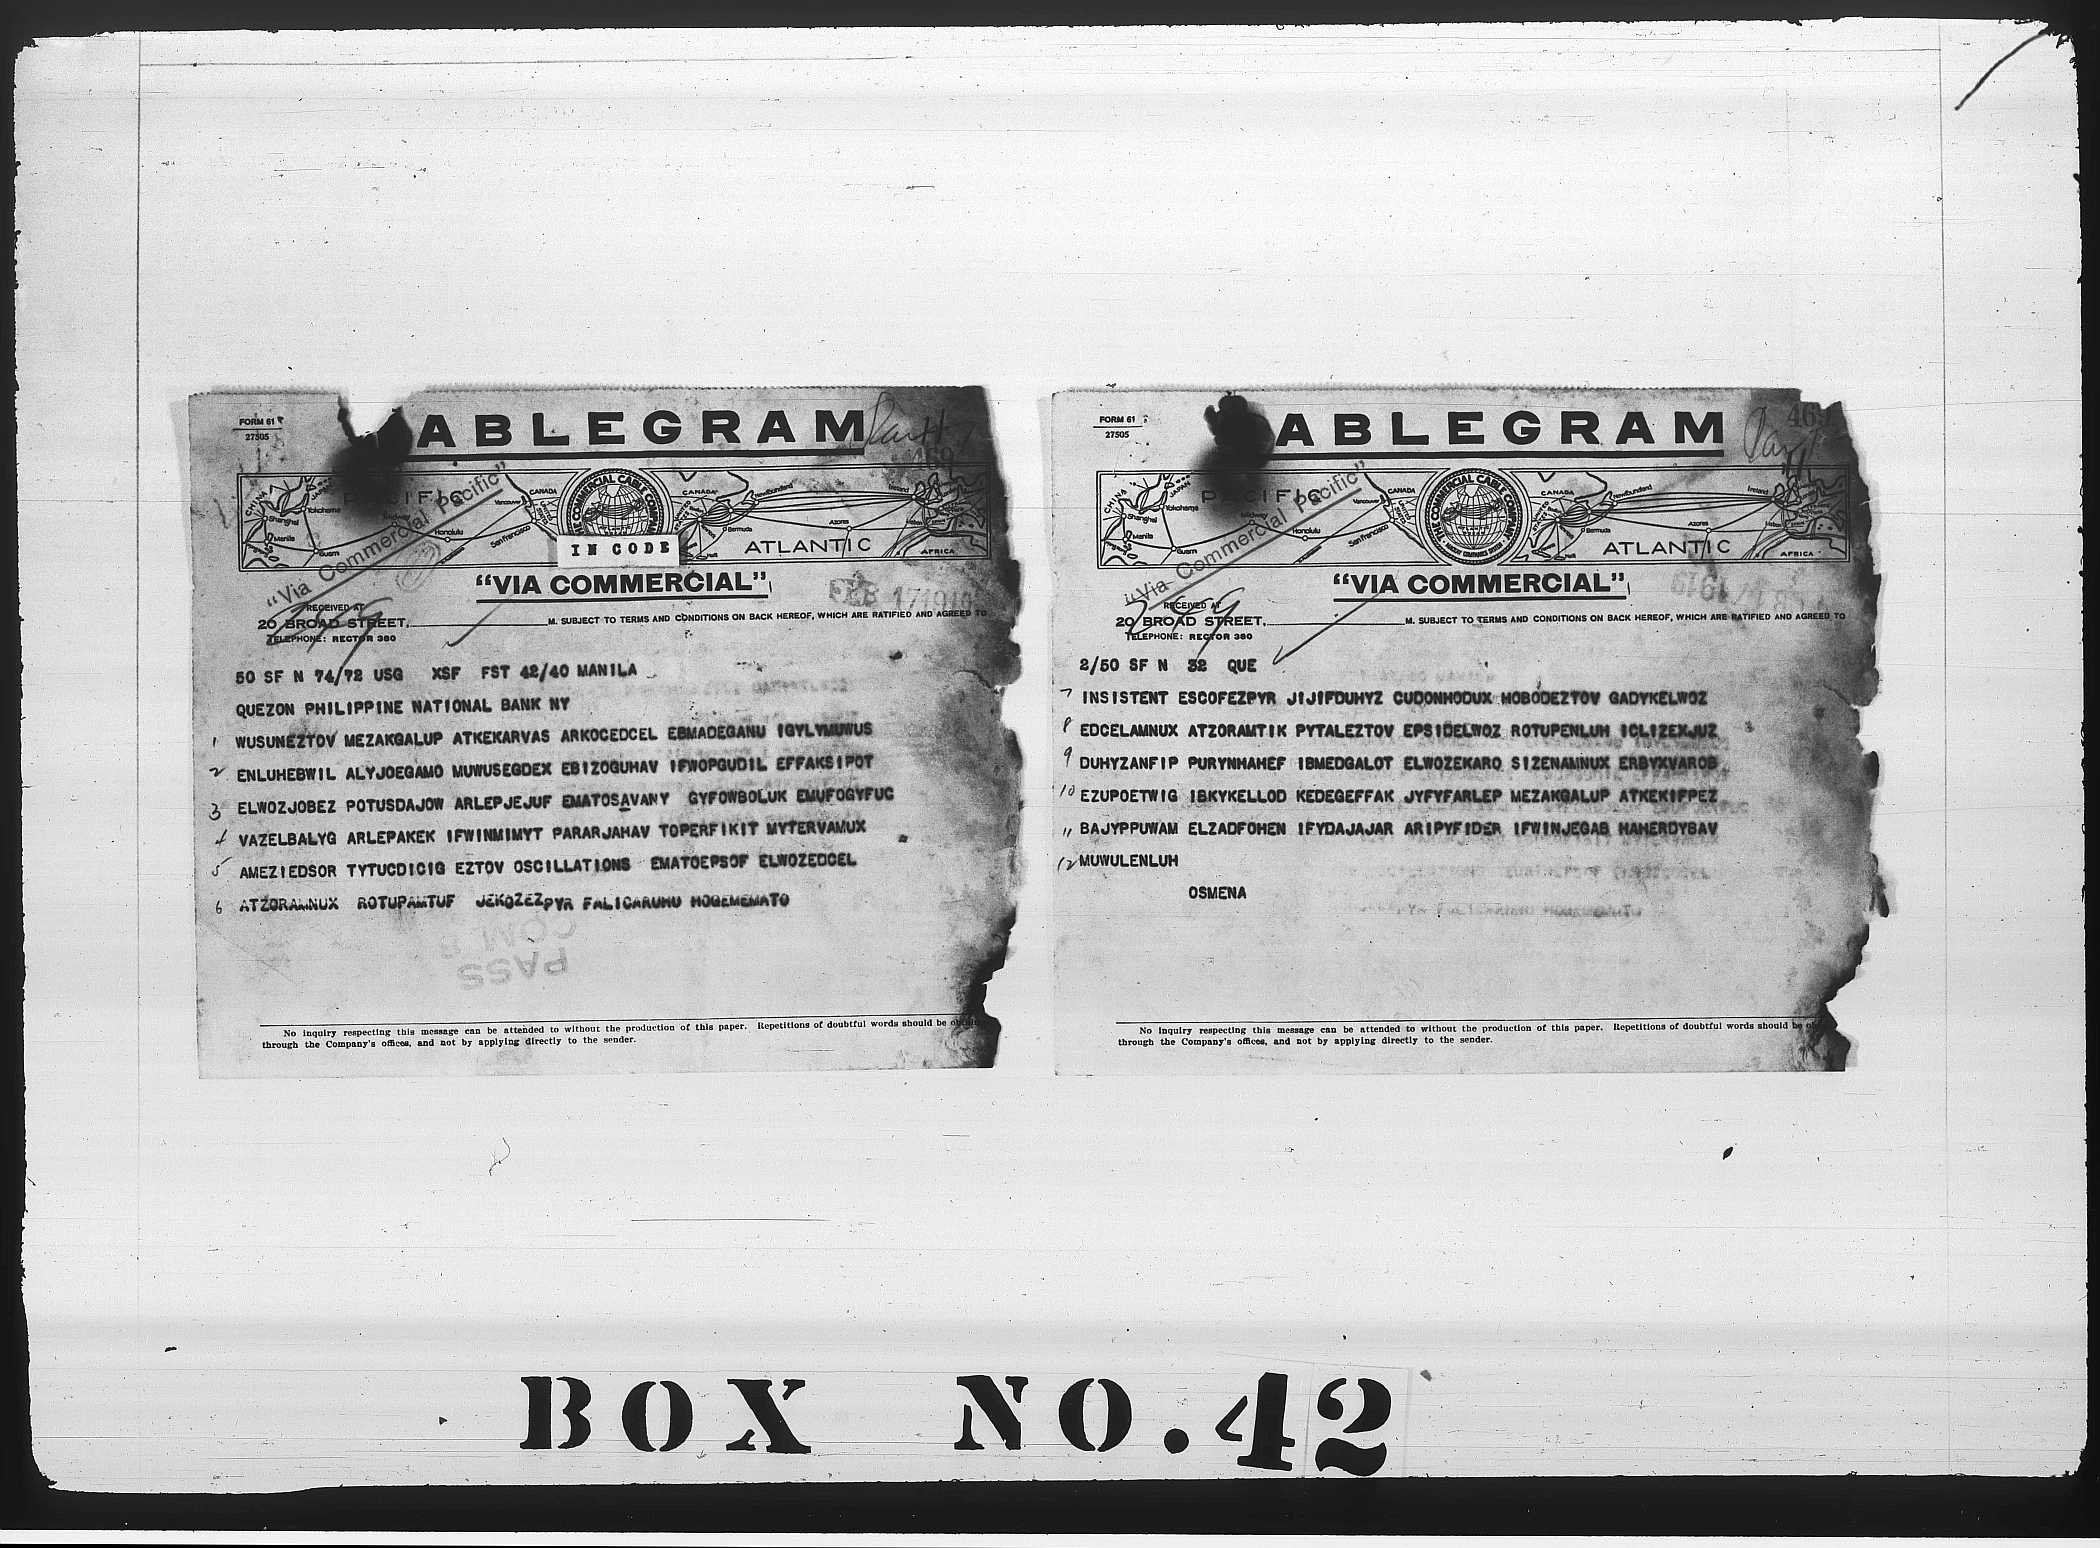 FORM 61
27505
ABLEGRAM
469
CHINA
JAPAN
PACIFIC
Yokohama
Shanghai
Manila
Guam
Midway
Honolulu
San Francisco
Vancouver
CANADA
THE COMMERCIAL CABLE COMPANY
CANADA
Newfoundland
Bermuda
Azores
Ireland
ATLANTIC
AFRICA
"Via Commercial Pacific"
IN CODE
"VIA COMMERCIAL"
FEB 17 1919
RECEIVED AT
20 BROAD STREET, M. SUBJECT TO TERMS AND CONDITIONS ON BACK HEREOF, WHICH ARE RATIFIED AND AGREED TO
TELEPHONE: RECTOR 380
50 SF N 74/72 USG XSF FST 42/40 MANILA
QUEZON PHILIPPINE NATIONAL BANK NY
1 WUSUNEZTOV MEZAKGALUP ATKEKARVAS ARKOCEDCEL EBMADEGANU IGYLYMUWUS
2 ENLUHEBWIL ALYJOEGAMO MUWUSEGDEX EBIZOGUHAV IFWOPGUDIL EFFAKSIPOT
3 ELWOZJOBEZ POTUSDAJOW ARLEPJEJUF EMATOSAVANY GYFOWBOLUK EMUFOGYFUC
4 VAZELBALYG ARLEPAKEK IFWINMIMYT PARARJAHAV TOPERFIKIT MYTERVAMUX
5 AMEZIEDSOR TYTUCDICIG EZTOV OSCILLATIONS EMATOEPSOF ELWOZEDCEL
6 ATZORAMNUX ROTUPAMTUF JEKOZEZPYR FALICARUHU HOGEMEMATO
PASS
COM B
No inquiry respecting this message can be attended to without the production of this paper. Repetitions of doubtful words should be
through the Company's offices, and not by applying directly to the sender.
FORM 61
27505
ABLEGRAM
46
CHINA
JAPAN
PACIFIC
Yokohama
Shanghai
Manila
Guam
Midway
Honolulu
San Francisco
Vancouver
CANADA
THE COMMERCIAL CABLE COMPANY
CANADA
Newfoundland
Bermuda
Azores
Ireland
ATLANTIC
AFRICA
"Via Commercial Pacific"
"VIA COMMERCIAL"
RECEIVED AT
20 BROAD STREET, M. SUBJECT TO TERMS AND CONDITIONS ON BACK HEREOF, WHICH ARE RATIFIED AND AGREED TO
TELEPHONE: RECTOR 380
2/50 SF N 32 QUE
7 INSISTENT ESCOFEZPYR JIJIFDUHYZ CUDONHODUX HOBODEZTOV GADYKELWOZ
8 EDCELAMNUX ATZORAMTIK PYTALEZTOV EPSIDELWOZ ROTUPENLUH ICLIZEXJUZ
9 DUHYZANFIP PURYNHAHEF IBMEDGALOT ELWOZEKARO SIZENAMNUX ERBYXVAROB
10 EZUPOETWIG IBKYKELLOD KEDEGEFFAK JYFYFARLEP MEZAKGALUP ATKEKIFPEZ
11 BAJYPPUWAM ELZADFOHEN IFYDAJAJAR ARIPYFIDER IFWINJEGAB HAHERDYBAV
12 MUWULENLUH
OSMENA
No inquiry respecting this message can be attended to without the production of this paper. Repetitions of doubtful words should be
through the Company's offices, and not by applying directly to the sender.
BOX NO. 42